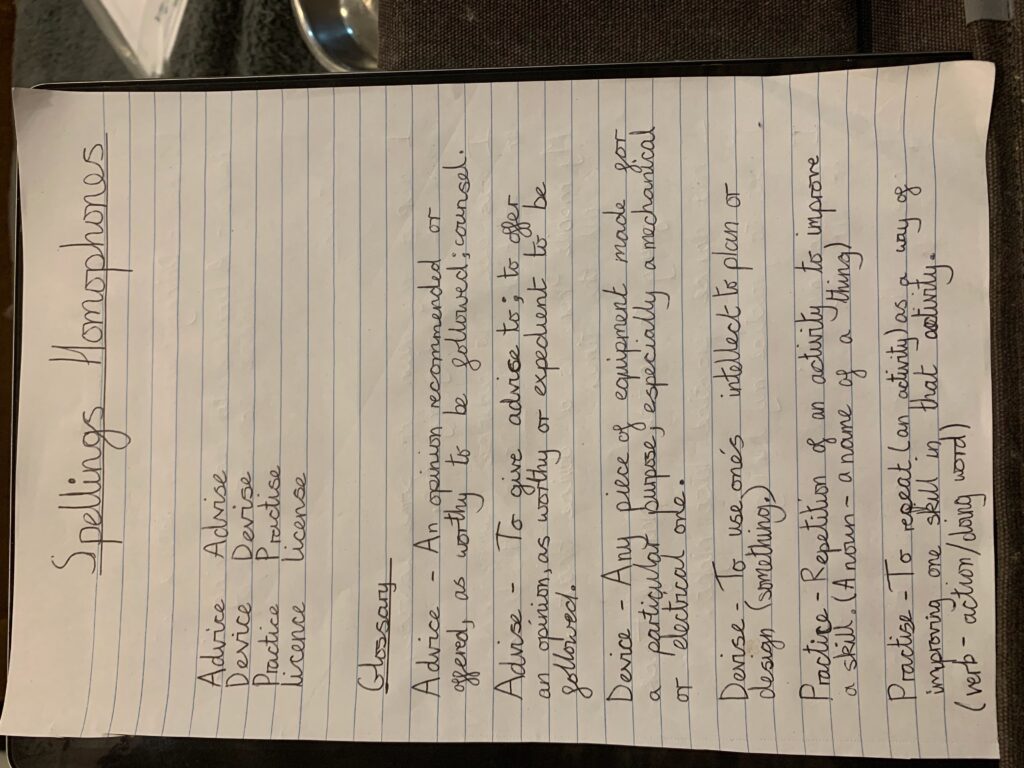 Spellings Homophones
Advice Advise
Device Devise
Practice Practise
licence license
Glossary
Advice - An opinion recommended or
offered, as worthy to be followed; counsel.
Advise - To give advise to; to offer
an opinion, as worthy or expedient to be
followed.
Device - Any piece of equipment made for
a particular purpose, especially a mechanical
or electrical one.
Devise - To use one's intellect to plan or
design (something.)
Practice - Repetition of an activity to improve
a skill. (A noun - a name of a thing)
Practise - To repeat (an activity) as a way of
improving one skill in that activity.
(verb - action/doing word)